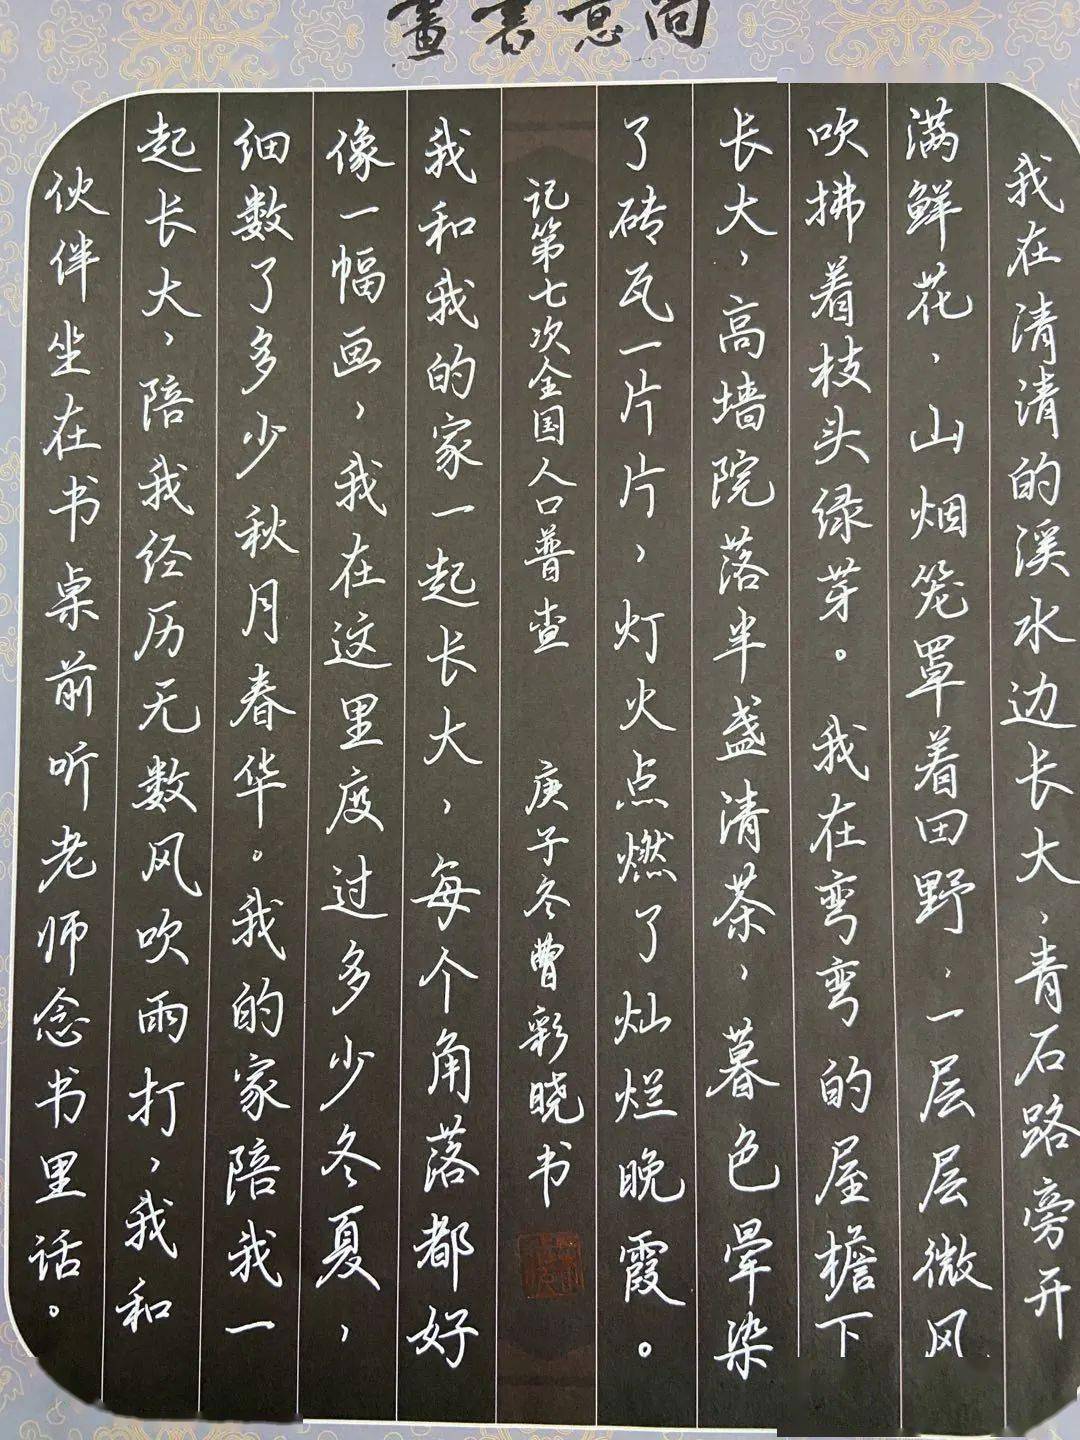 尚意书画
我在清清的溪水边长大，青石路旁开
满鲜花，山烟笼罩着田野，一层层微风
吹拂着枝头绿芽。我在弯弯的屋檐下
长大，高墙院落半盏清茶，暮色晕染
了砖瓦一片片，灯火点燃了灿烂晚霞。
记第七次全国人口普查 庚子冬曹彩晓书
我和我的家一起长大，每个角落都好
像一幅画，我在这里度过多少冬夏，
细数了多少秋月春华。我的家陪我一
起长大，陪我经历无数风吹雨打，我和
伙伴坐在书桌前听老师念书里话。